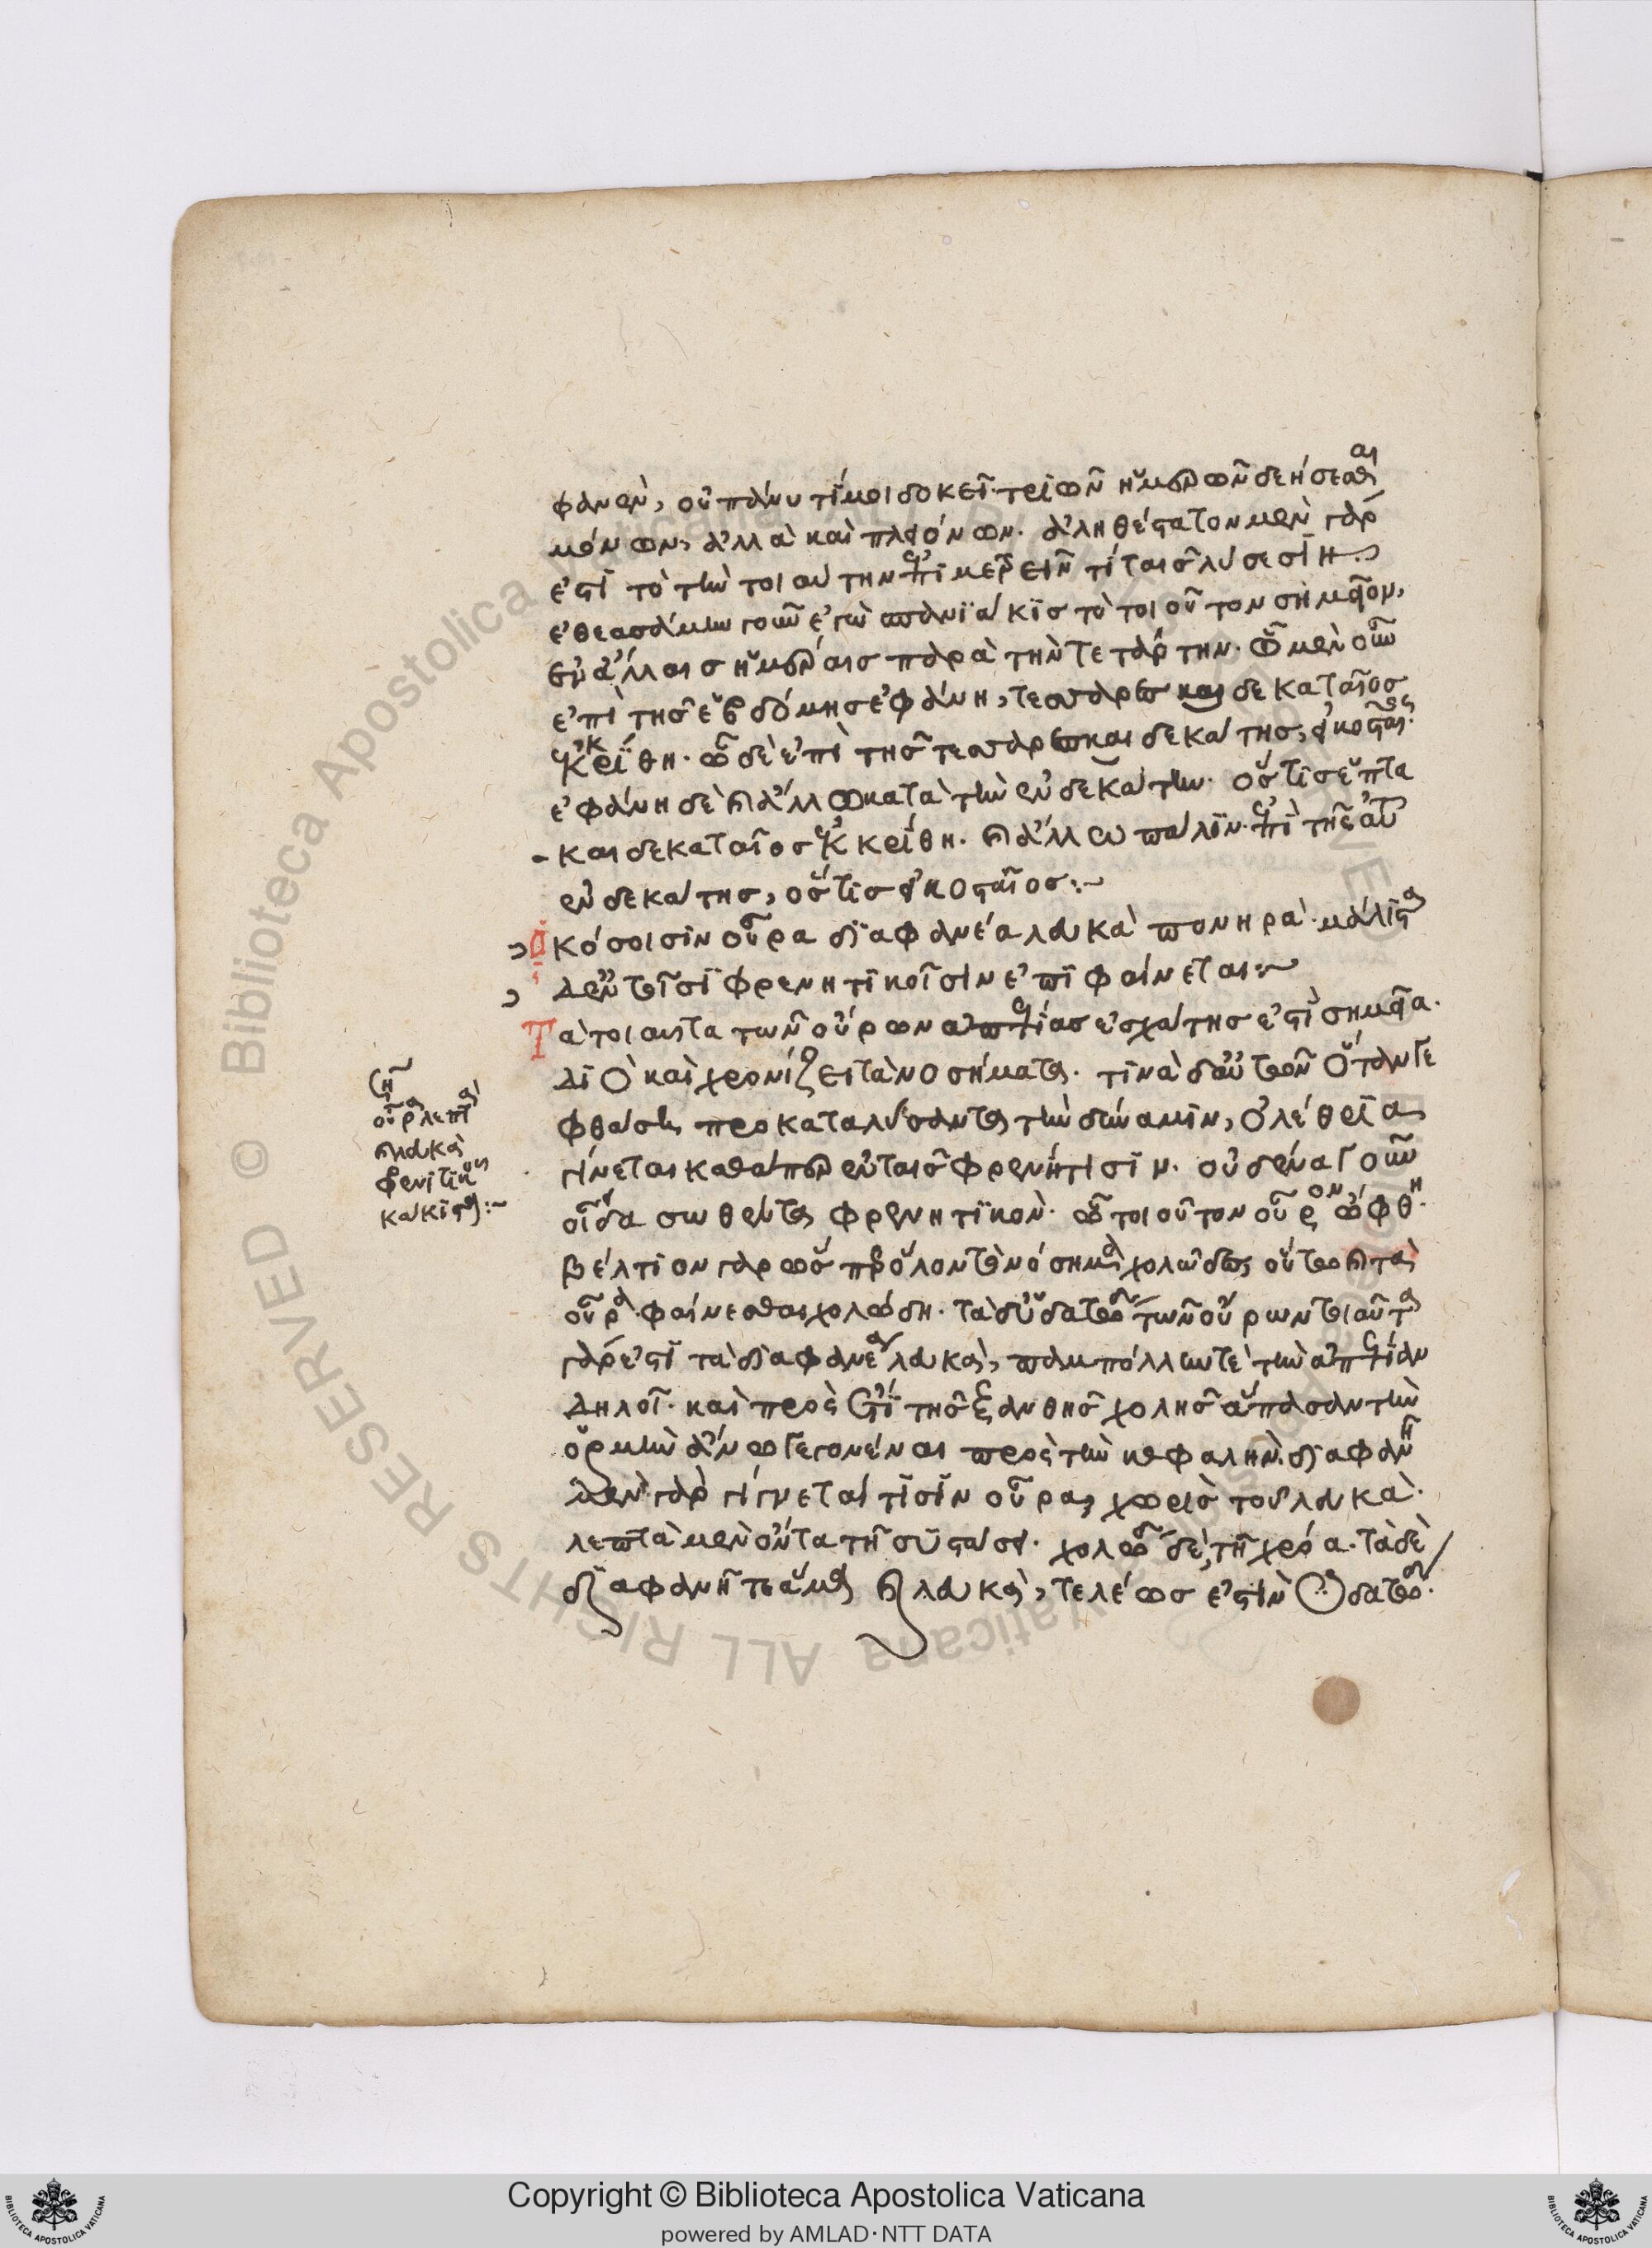 φανὲν, οὐ πάνυ τί μοι δοκεῖ τριῶν ἡμερῶν δεήσεσθαι
μόνων, ἀλλὰ καὶ πλειόνων. ἀληθέστατον μὲν γὰρ
ἐστὶ τὸ τὴν τοιαύτην ἐπιμετρεῖν τί ταῖς λύσεσιν
ἐθεασάμην γοῦν ἐγὼ σπανιάκις τὸ τοιοῦτον σημεῖον,
ἐν ἄλλαις ἡμέραις παρὰ τὴν τετάρτην. ᾧ μὲν οὖν
ἐπὶ τῆς ἑβδόμης ἐφάνη, τεσσαρεσκαιδεκαταῖος
ἐκρίθη. ᾧ δὲ ἐπὶ τῆς τεσσαρεσκαιδεκάτης, εἰκοσταῖος.
ἐφάνη δὲ καὶ ἄλλω κατὰ τὴν ἑνδεκάτην. ὅστις ἑπτα
καιδεκαταῖος ἐκρίθη. καὶ ἄλλω πάλιν ἐπὶ τῆς αὐτ
ἑνδεκάτης, ὅστις εἰκοσταῖος:~
Ὁκόσοισιν οὖρα διαφανέα λευκὰ πονηρά· μάλιστα
δ' ἐν τοῖσι φρενητικοῖσιν ἐπιφαίνεται:~
Τὰ τοιαῦτα τῶν οὔρων ἀπεψίας ἐσχάτης ἐστὶ σημεῖα.
διὸ καὶ χρονίζει τὰ νοσήματα. τινὰ δ' αὐτῶν ὅταν γε
φθάση προκαταλύσαντα τὴν δύναμιν, ὀλέθρια
γίνεται καθάπερ ἐν ταῖς φρενήτισιν. οὐδένα γοῦν
οἶδα σωθέντα φρενητικὸν. ᾧ τοιοῦτον οὖρον ὤφθη.
βέλτιον γὰρ ὥσπερ ὅλον τὸ νόσημα χολῶδες οὕτω καὶ τὰ
οὖρα φαίνεσθαι χολώδη. τὰ δ' ὑδατώδη τῶν οὔρων τοιαῦτα
γάρ ἐστι τὰ διαφανέα λευκὰ, παμπόλλην τὲ τὴν ἀπεψίαν
δηλοῖ. καὶ πρὸς ἔτι τῆς ξανθῆς χολῆς ἅπασαν τὴν
ὁρμὴν ἄνω γεγονέναι πρὸς τὴν κεφαλὴν. διαφανῆ
μὲν γὰρ γίγνεταί τισιν οὖρα, χωρὶς τοῦ λευκὰ.
λεπτὰ μὲν ὄντα τῆ συστάσει. χολώδη δὲ, τῆ χρόα. τὰ δὲ
διαφανῆ τε ἅμα καὶ λευκὰ, τελέως ἐστὶν ὑδατώδη.
ση
οὖρα λεπτὰ
καὶ λευκὰ
φρενιτικοῖς
κάκιστα:~
Copyright © Biblioteca Apostolica Vaticana
powered by AMLAD·NTT DATA